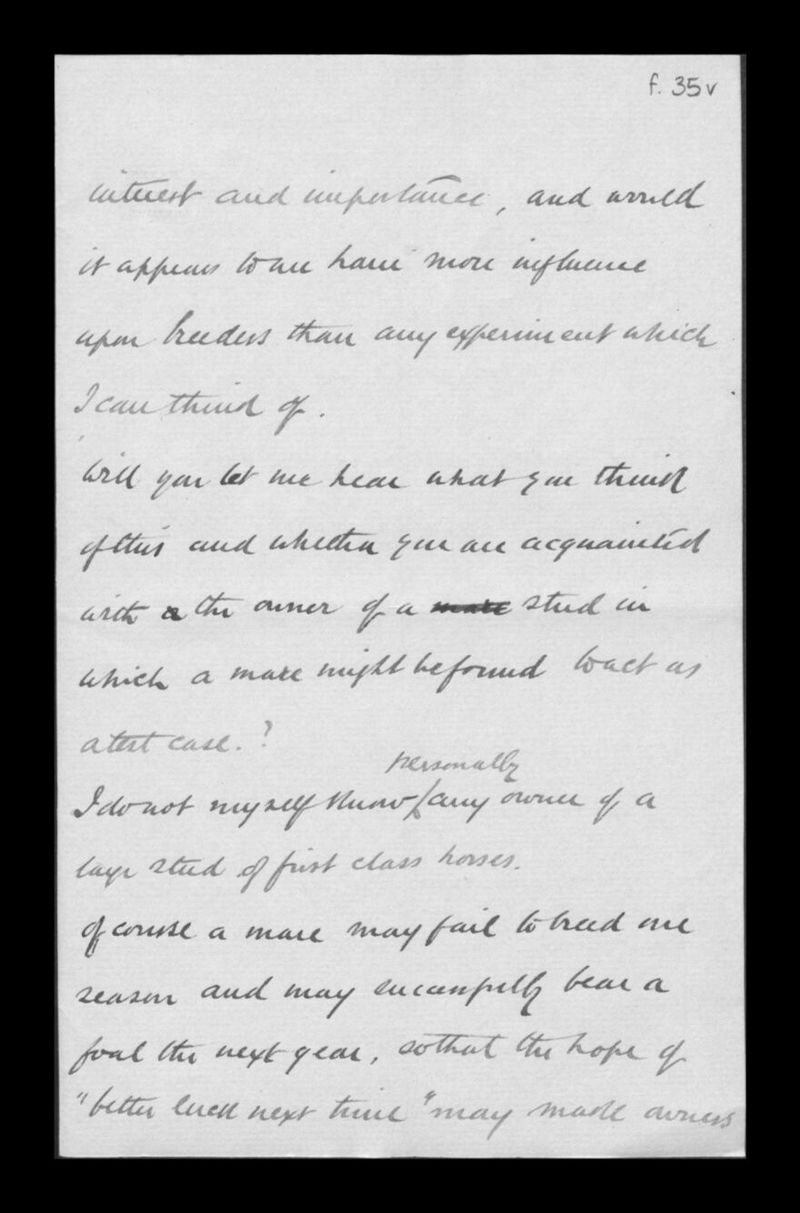 f. 35v
interest and importance, and would
it appears to me have more influence
upon breeders than any experiment which
I can think of.
Will you let me hear what you think
of this and whether you are acquainted
with a the owner of a mare stud in
which a mare might be found to act as
a test case.?
personally
I do not myself know any owner of a
large stud of first class horses.
Of course a mare may fail to breed one
season and may successfully bear a
foal the next year, so that the hope of
"better luck next time" may make owners